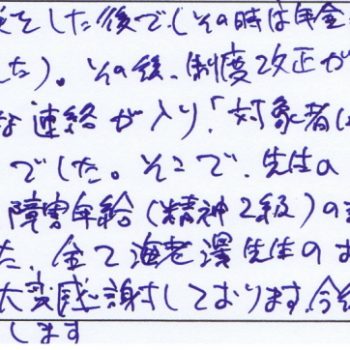 をした後で(その時は年金
した)。その後、制度改正が
な連絡が入り、「対象者に
でした。そこで、先生の
障害年給(精神2級)の
た、全て海老澤先生のお
大変感謝しております。今
します